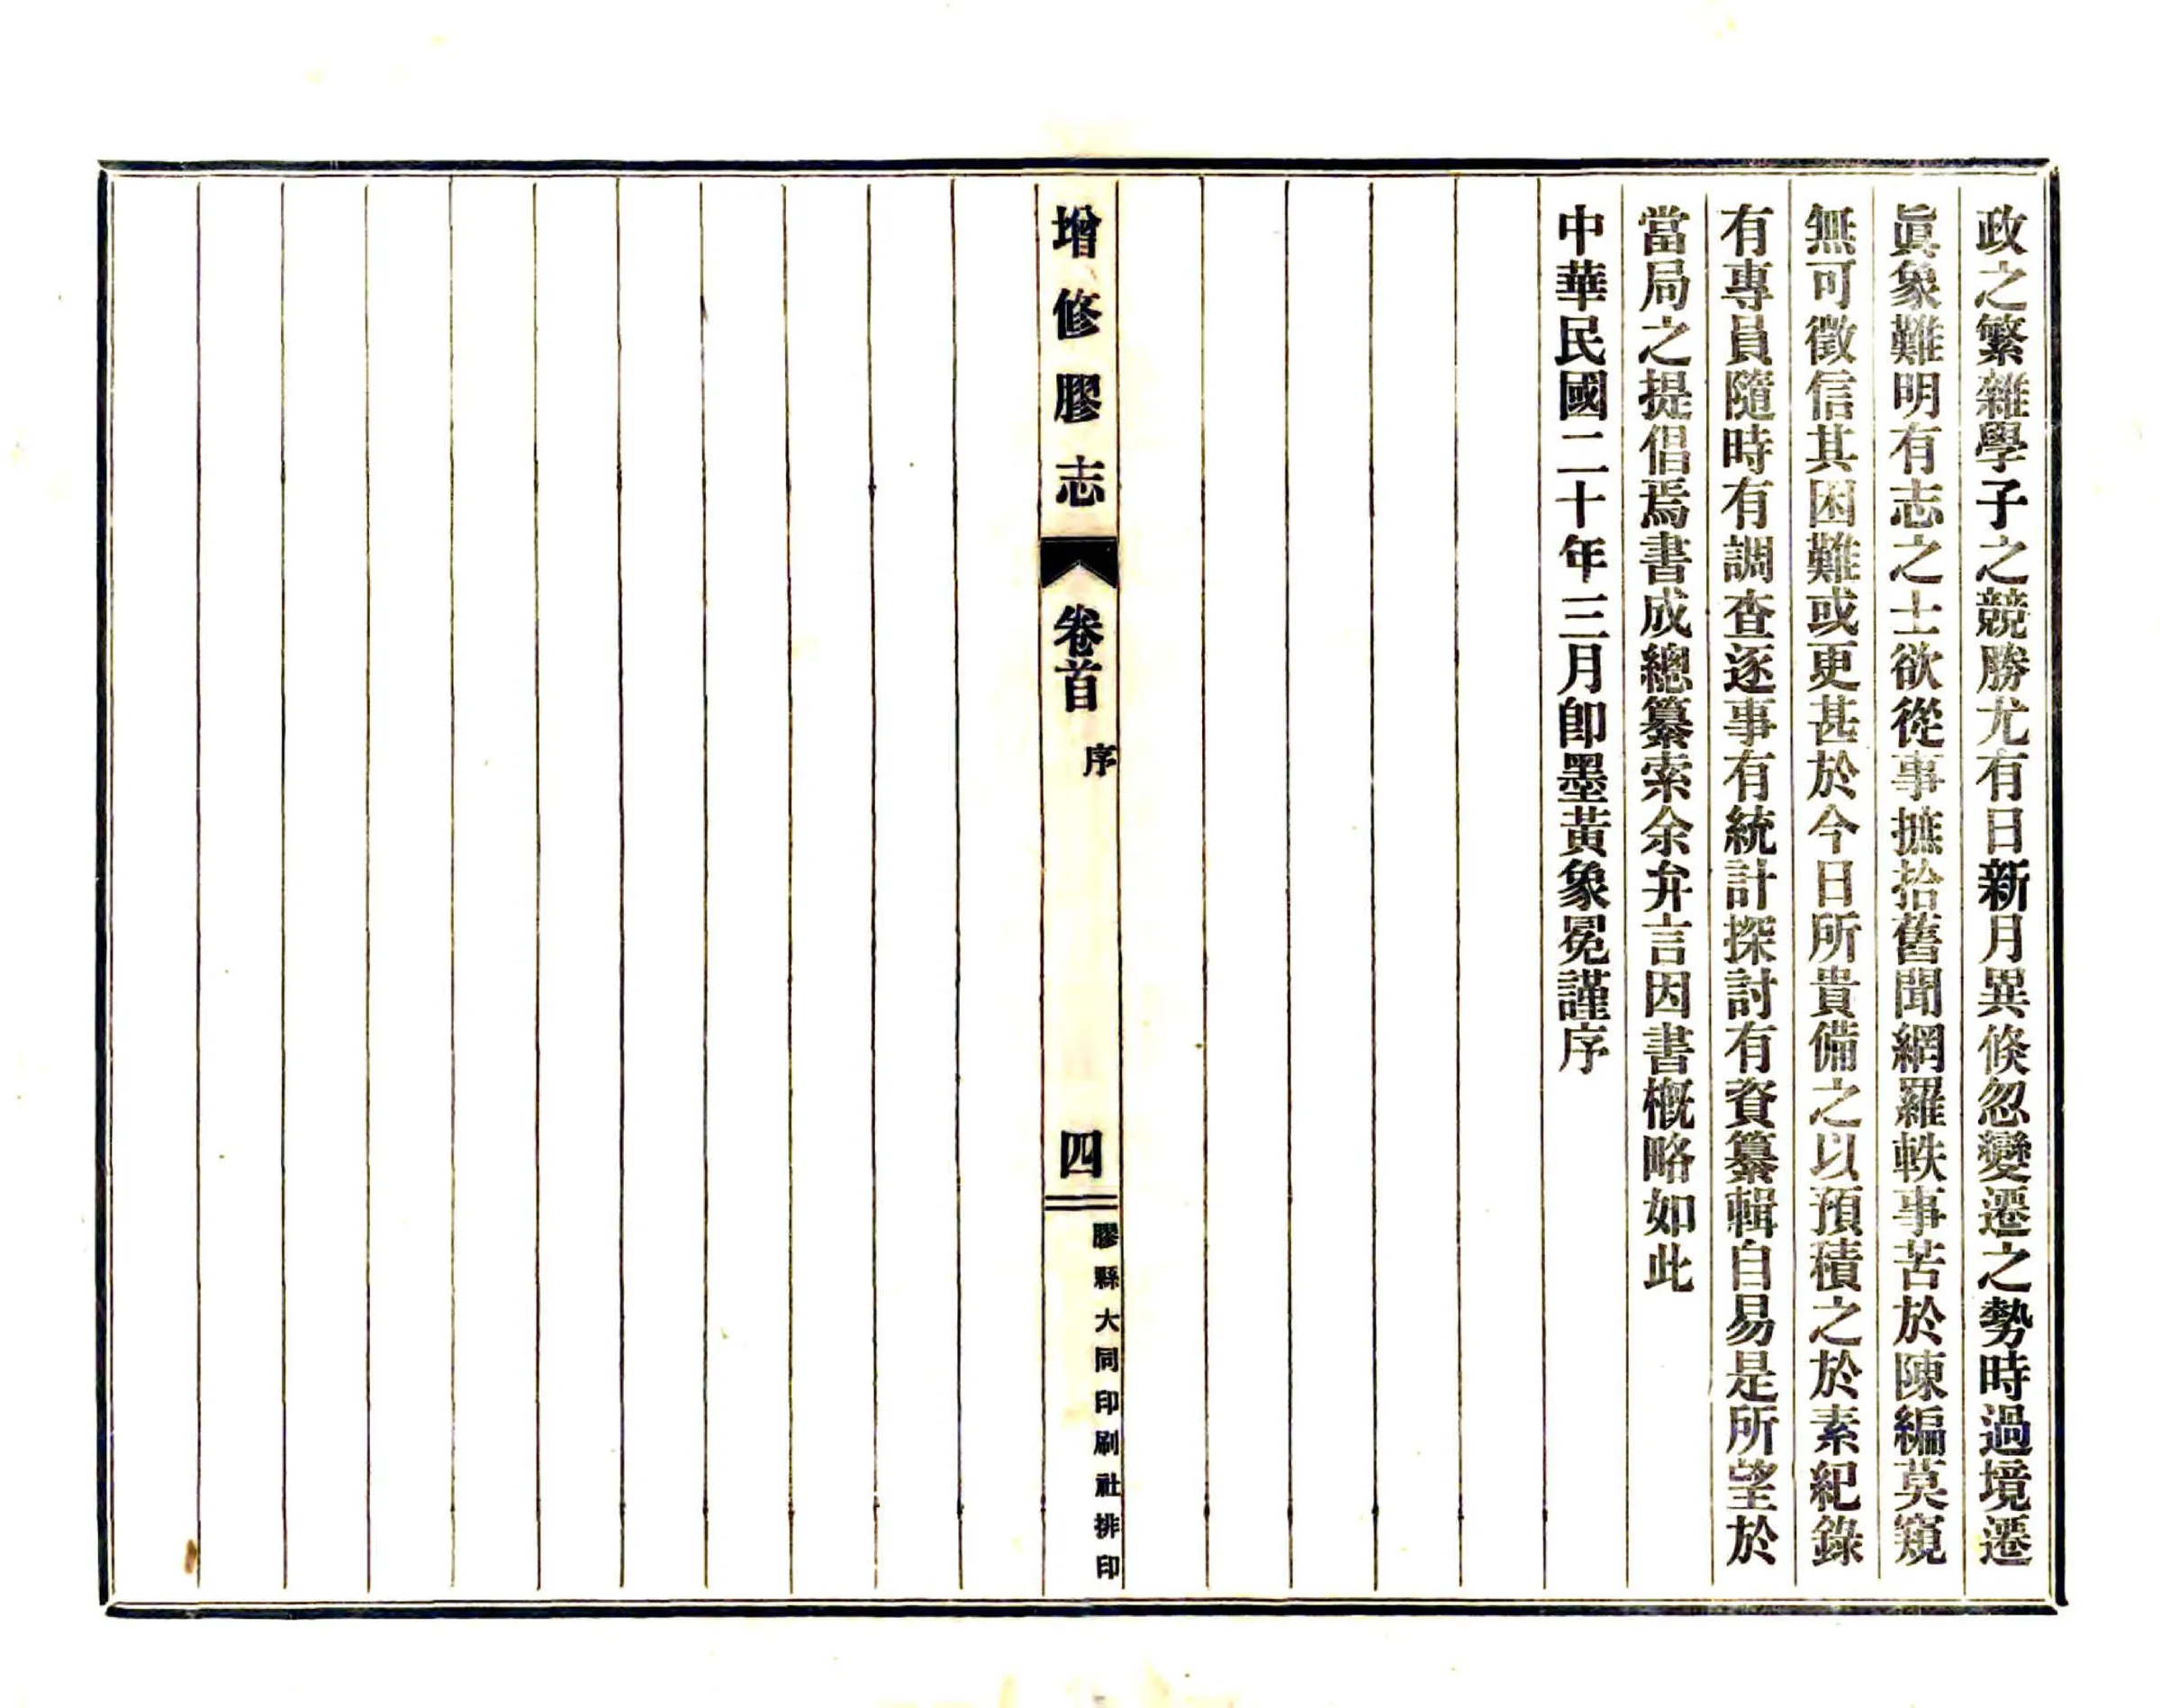 政之繁雜學子之競勝尤有日新月異倏忽變遷之勢時過境遷
眞象難明有志之士欲從事摭拾舊聞網羅軼事苦於陳編莫窺
無可徵信其困難或更甚於今日所貴備之以預積之於素紀錄
有專員隨時有調查逐事有統計探討有資纂輯自易是所望於
當局之提倡焉書成總纂索余弁言因書槪略如此
中華民國二十年三月卽墨黃象冕謹序
增修膠志 卷首 序 四 膠縣大同印刷社排印